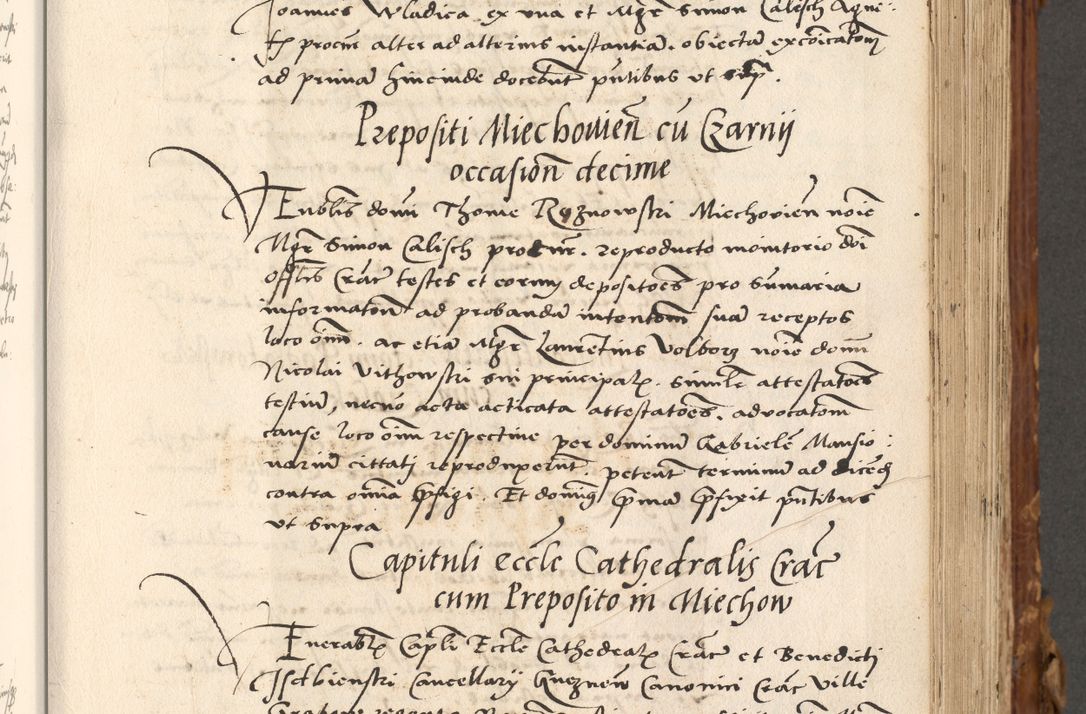 Joannes Wladica ex una et Mgr Simon Calisch Agne-
procur alter ad alterius instantiã obiectã excõicatom
ad primã hincinde docebunt pntibus ut supra.
Prepositi Miechovien̄ cũ Czarnij
occasion̄ decime
Venblis domi Thome Roznowski Miechovien noiē
Mgr Simon Calisch procur. reproducto monitorio dni
offlis Crac testes et eorum depositões pro sumaria
informatom ad probandã intentom suã receptos
loco oīm. ac etiã Mgr Laurentius Volborz noiē domi
Nicolai Vithowski sui principal. simile attestatões
testiũ, necnõ acta acticata attestatões, advocatom
cause loco oīm respective per dominũ Gabrielē Mansio-
nariũ cittati reproduxerũt. petent terminũ ad dicend
contra omīa pfigi. Et domīq pma pfixit pntibus
ut supra
Capituli eccle Cathedralis Crac
cum Preposito in Miechow
Venerabl Capli Eccle Cathedral Crac et Benedicti
Isdbienski Cancellarij Gneznen Canonici Crac Ville